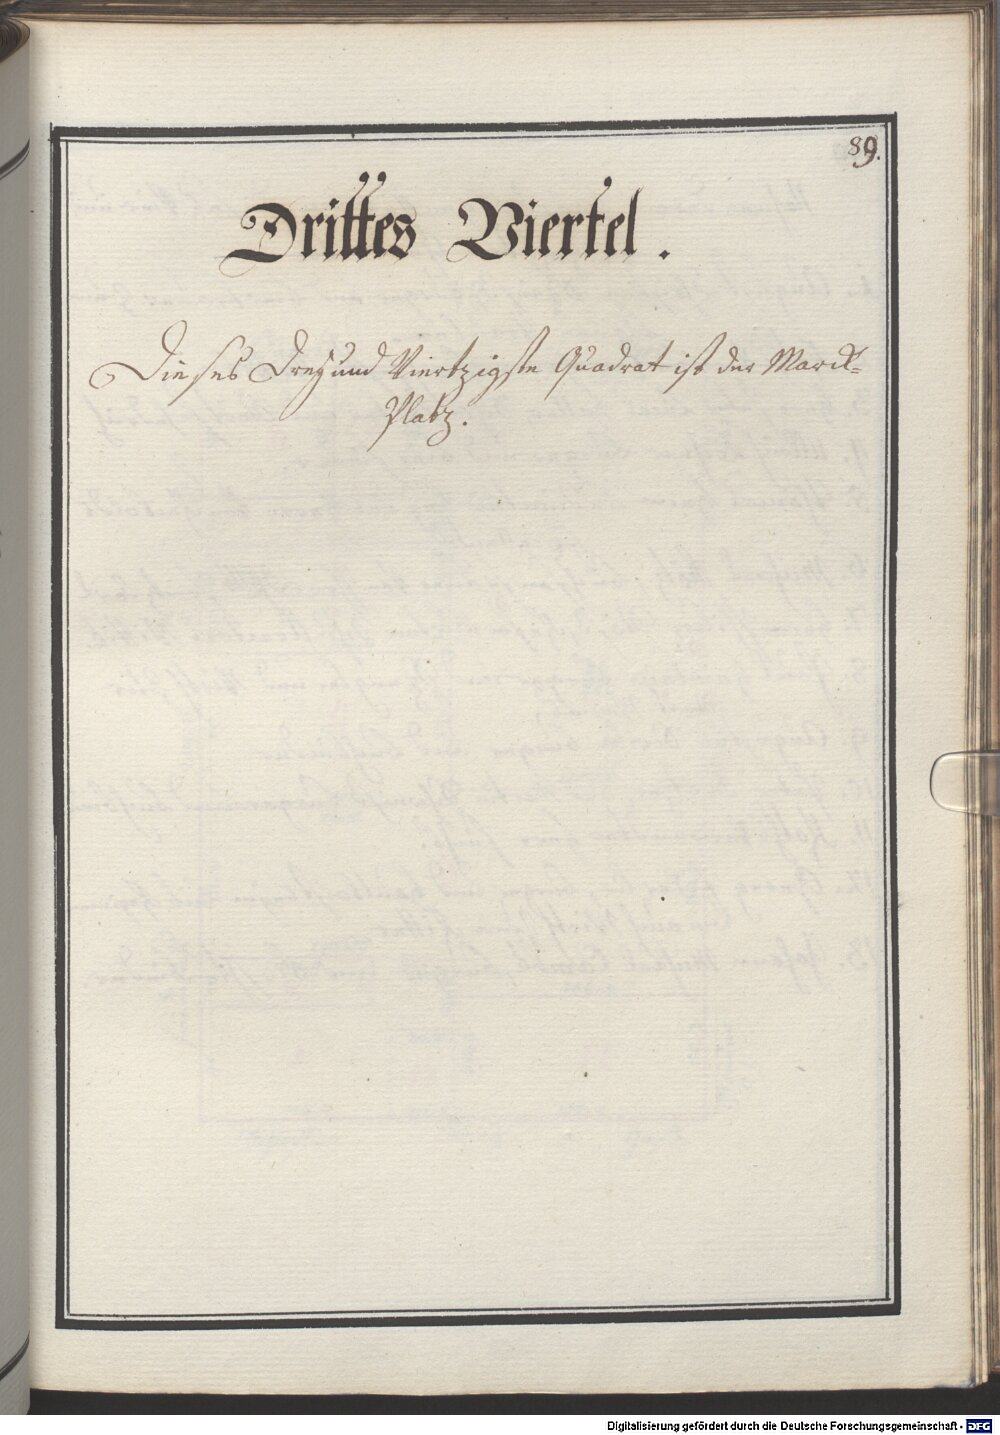 89.
Drittes Viertel.
Dieses Dreÿ und Viertzigste Quadrat ist der Marck-
Platz.
Digitalisierung gefördert durch die Deutsche Forschungsgemeinschaft - DFG